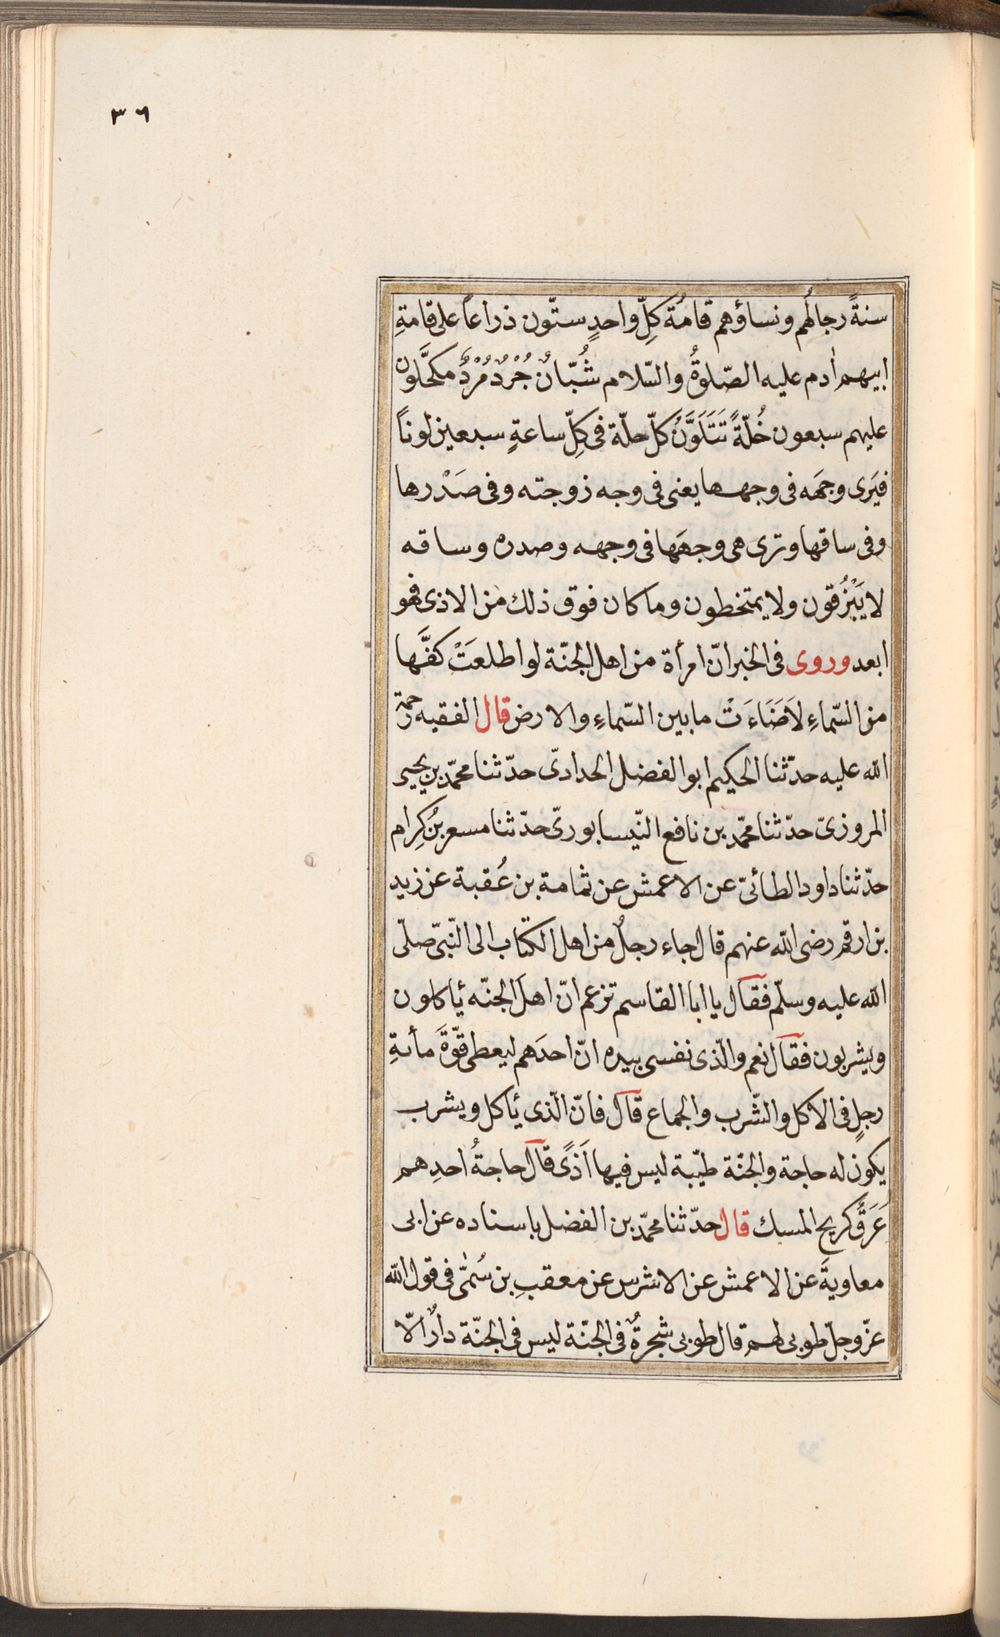 ٣٦
سنةً رجالُهم ونساؤهم قامَة كلِّ واحدٍ ستّون ذراعاً على قامةِ
ابيهم اٰدم عليه الصّلوةُ والسّلام شُبّانٌ جُرْدٌ مُرْدٌ مكحَّلَون
عليهم سبعون حُلّةً تَتَلَوَّنُ كلّ حلّة فى كلِّ ساعةٍ سبعين لوناً
فيَرى وجهَه فى وجهها يعنى فى وجه زوجته وفى صَدْرها
وفى ساقها وترى هى وجهَها فى وجهه وصدره وساقه
لا يَبْزُقون ولا يمتخطون وما كان فوق ذلك من الاذى فهو
ابعد وروى فى الخبر انّ امرأة من اهل الجنّة لو اطلعَتْ كفَّها
من السّماءِ لَاَضَاءَتْ ما بين السّماءِ والارض قال الفقيه رحمة
الله عليه حدّثنا الحكيم ابو الفضل الحدادىّ حدّثنا محمّد بن يحيى
المروزىّ حدّثنا محمّد بن نافع النّيسابورىّ حدّثنا مسعر بنُ كِرام
حدّثنا داود الطائىّ عن الاعمش عن ثمامة بن عُقبة عن زيد
بن ارقم رضى الله عنهم قال جاء رجلٌ من اهل الكتاب الى النّبىّ صلّى
الله عليه وسلّم فقال يا ابا القاسم تزعم انّ اهلَ الجنّه يأكلون
ويشربون فقال نعم والّذى نفسى بيده انّ احدَهم ليعطى قوّةَ مأتةِ
رجلٍ فى الاكل والشّرب والجماع قال فانّ الّذى يأكل ويشرب
يكون له حاجة والجنّة طيّبة ليس فيها اَذًى قال حاجةُ احدِهم
عَرَقٌ كريح المسك قال حدّثنا محمّد بن الفضل باسناده عن ابى
معاويةَ عن الاعمش عن الاشرس عن معقبِ بن سُمىّ فى قول الله
عزّ وجلّ طوبى لهم قال طوبى شجرةٌ فى الجنّة ليس فى الجنّة دارٌ الّا